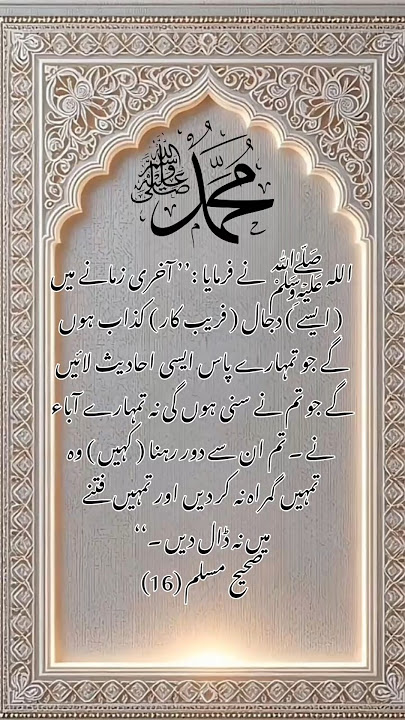 محمد صلى الله عليه وسلم
اللہ ﷺ نے فرمایا : ’’ آخری زمانے میں
( ایسے ) دجال ( فریب کار ) کذاب ہوں
گے جو تمہارے پاس ایسی احادیث لائیں
گے جو تم نے سنی ہوں گی نہ تمہارے آباء
نے ۔ تم ان سے دور رہنا ( کہیں ) وہ
تمہیں گمراہ نہ کر دیں اور تمہیں فتنے
میں نہ ڈال دیں ۔ ‘‘
صحیح مسلم (16)